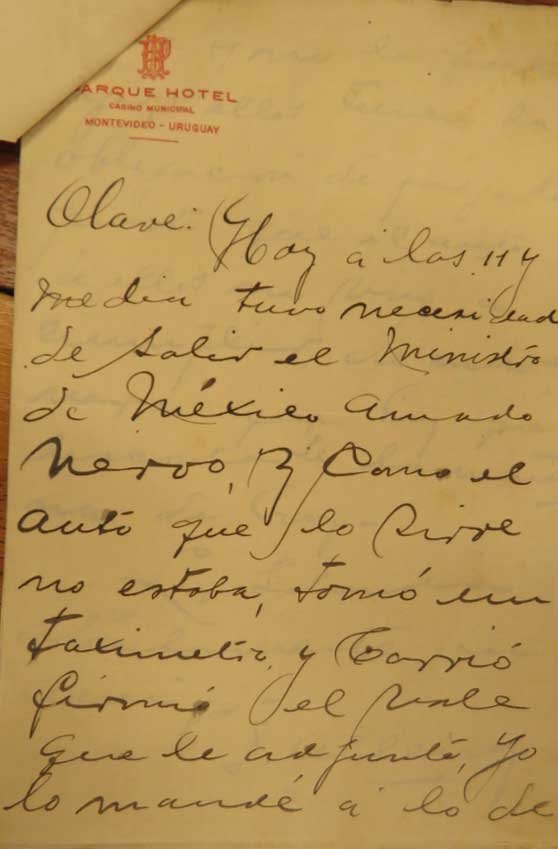 PARQUE HOTEL
CASINO MUNICIPAL
MONTEVIDEO - URUGUAY
Olave: Hoy a las 11 y
media tuvo necesidad
de salir el Ministro
de México Amado
Nervo, y como el
auto que lo sirve
no estaba, tomó un
taximetro, y Carrió
firmó el vale
que le adjunto, yo
lo mandé a lo de